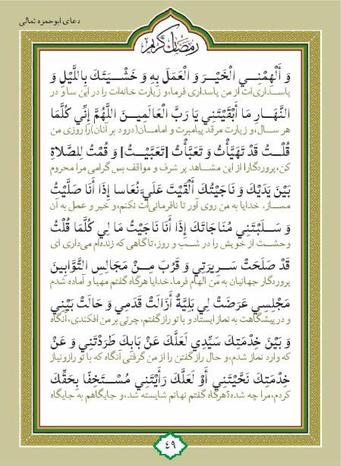 دعای ابوحمزه ثمالی
رمضان کریم
وَ أَلْهِمْنِي الْخَيْرَ وَ الْعَمَلَ بِهِ وَ خَشْيَتَكَ بِاللَّيْلِ وَ
پاسداری‌ات از من پاسداری فرما، و زیارت خانه‌ات را در این سال و در
النَّهَارِ مَا أَبْقَيْتَنِي يَا رَبَّ الْعَالَمِينَ اللَّهُمَّ إِنِّي كُلَّمَا
هر سال، و زیارت مرقد پیامبرت و امامان (درود بر آنان) را روزی من
قُلْتُ قَدْ تَهَيَّأْتُ وَ تَعَبَّأْتُ [تَعَبَّيْتُ] وَ قُمْتُ لِلصَّلاةِ
کن، پروردگارا از این مشاهد پر شرف و مواقف بس گرامی مرا محروم
بَيْنَ يَدَيْكَ وَ نَاجَيْتُكَ أَلْقَيْتَ عَلَيَّ نُعَاسا إِذَا أَنَا صَلَّيْتُ
مساز. خدایا به من روی آور تا نافرمانی‌ات نکنم، و خیر و عمل به آن
وَ سَلَبْتَنِي مُنَاجَاتَكَ إِذَا أَنَا نَاجَيْتُ مَا لِي كُلَّمَا قُلْتُ
وحشت از خویش را در شب و روز، تا گاهی که زنده‌ام می‌داری ای
قَدْ صَلَحَتْ سَرِيرَتِي وَ قَرُبَ مِنْ مَجَالِسِ التَّوَّابِينَ
پروردگار جهانیان به من الهام فرما. خدایا هرگاه گفتم مهیا و آماده شدم
مَجْلِسِي عَرَضَتْ لِي بَلِيَّةٌ أَزَالَتْ قَدَمِي وَ حَالَتْ بَيْنِي
و در پیشگاهت به نماز ایستادم و با تو راز گفتم، چرتی بر من افکندی، آنگاه
وَ بَيْنَ خِدْمَتِكَ سَيِّدِي لَعَلَّكَ عَنْ بَابِكَ طَرَدْتَنِي وَ عَنْ
که وارد نماز شدم، و حال راز گفتن را از من گرفتی آنگاه که با تو رازونیاز
خِدْمَتِكَ نَحَّيْتَنِي أَوْ لَعَلَّكَ رَأَيْتَنِي مُسْتَخِفّا بِحَقِّكَ
کردم، مرا چه شده؟ هرگاه گفتم نهانم شایسته شد، و جایگاهم به جایگاه
۴۹